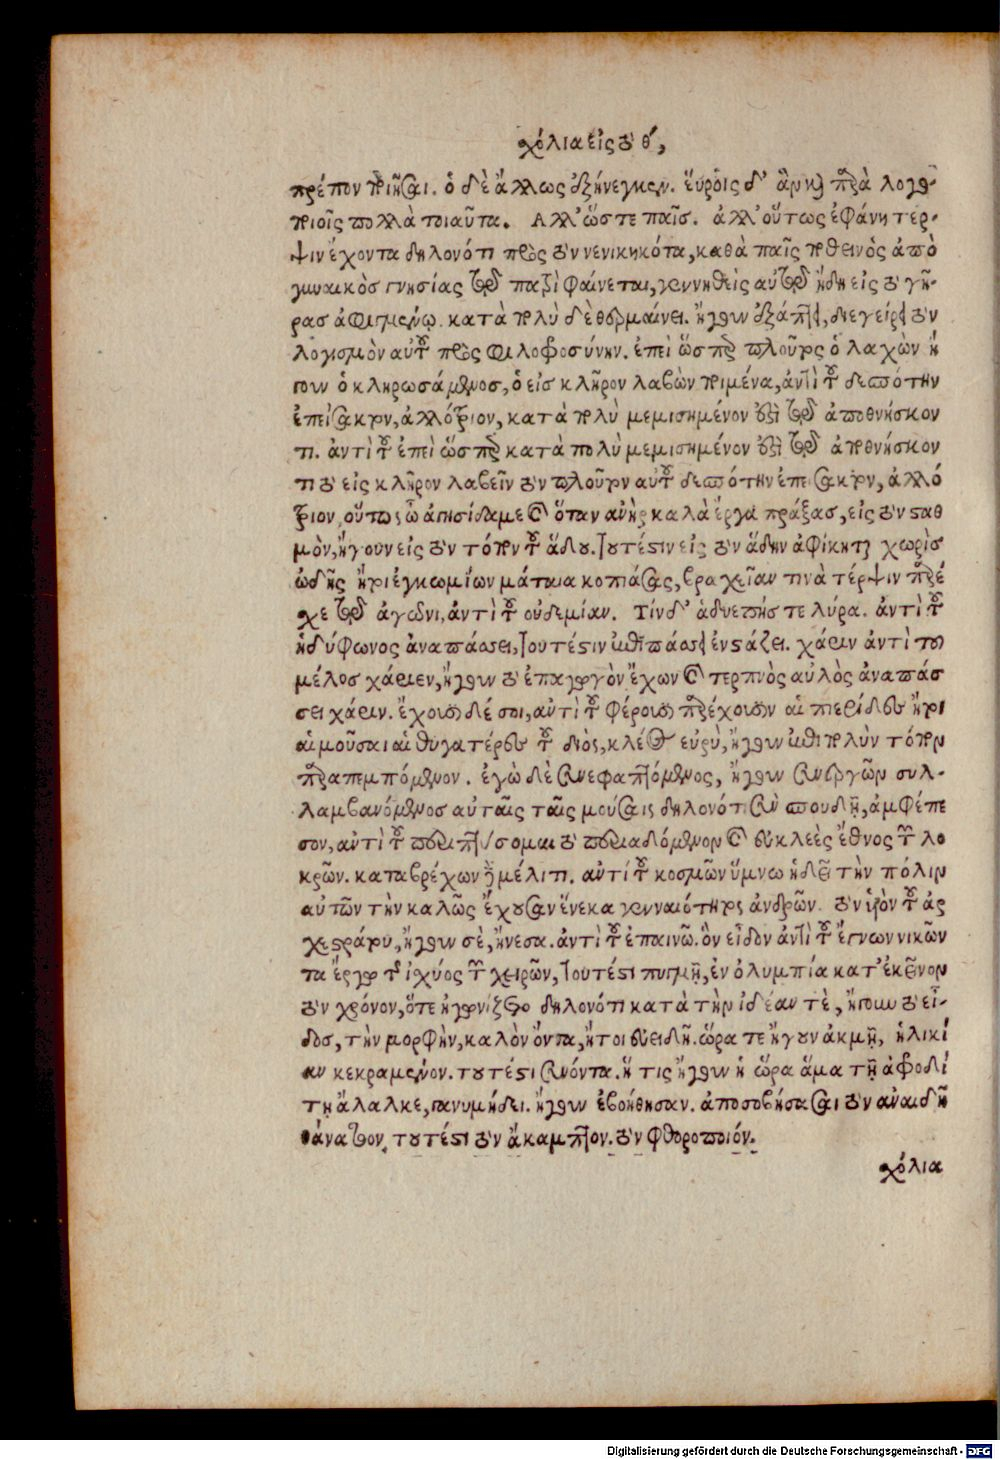 χόλια εἰς τὸ θʹ,
πρέπον ποιῆσαι. ὁ δὲ ἄλλως ἐξήνεγκεν. εὕροις δʼ ἂν καὶ παρὰ λογο
ποιοῖς πολλὰ τοιαῦτα. Αλλʼ ὥστε παῖς. ἀλλʼ οὕτως ἐφάνη τερ-
ψιν ἔχοντα δηλονότι πρὸς τὸν νενικηκότα, καθὰ παῖς ποθεινὸς ἀπὸ
γυναικὸσ γνησίας τῷ πατρὶ φαίνεται, γεννηθεὶς αὐτῷ ἤδη εἰς τὸ γῆ-
ρασ ἀφιγμένῳ. κατὰ πολὺ δὲ θερμαίνει. ἤγουν ἐξάπτει, διεγείρει τὸν
λογισμὸν αὐτοῦ πρὸς φιλοφροσύνην. ἐπεὶ ὥσπερ πλοῦτος ὁ λαχὼν ἤ
γουν ὁ κληρωσάμενοσ, ὁ εἰσ κλῆρον λαβὼν ποιμένα, ἀντὶ τοῦ δεσπότην
ἐπείσακτον, ἀλλότριον, κατὰ πολὺ μεμισημένον ἐστὶ τῷ ἀποθνήσκον
τι. ἀντὶ τοῦ ἐπεὶ ὥσπερ κατὰ πολὺ μεμισημένον ἐστὶ τῷ ἀποθνήσκον
τι τὸ εἰς κλῆρον λαβεῖν τὸν πλοῦτον αὐτοῦ δεσπότην ἐπείσακτον, ἀλλό
τριον, οὕτως ὦ ἀγησίδαμε καὶ ὅταν ἀνὴρ καλὰ ἔργα πράξασ, εἰς τὸν σταθ
μὸν, ἤγουν εἰς τὸν τόπον τοῦ ἅδου. τουτέστιν εἰς τὸν ἅδην ἀφίκηται χωρὶσ
ὠδῆς ἤτοι ἐγκωμίων μάταια κοπιάσας, βραχεῖαν τινὰ τέρψιν παρέ
χε τῷ ἀγῶνι, ἀντὶ τοῦ οὐδεμίαν. Τίνδʼ ἁδυεπής τε λύρα. ἀντὶ τοῦ
ἡδύφωνος ἀναπάσσει, τουτέστιν ἐπιπάσσει ἐνστάζει. χάριν ἀντὶ τοῦ
μέλοσ χάριεν, ἤγουν τὸ ἐπαγωγὸν ἔχων καὶ τερπνὸς αὐλὸς ἀναπάσ
σει χάριν. ἔχουσι δέ σοι, ἀντὶ τοῦ φέρουσι παρέχουσιν αἱ πιερίδες ἤτοι
αἱ μοῦσαι αἱ θυγατέρες τοῦ διὸς, κλέος εὐρὺ, ἤγουν ἐπὶ πολὺν τόπον
παραπεμπόμενον. ἐγὼ δὲ συνεφαπτόμενος, ἤγουν συνεργῶν συλ-
λαμβανόμενοσ αὐταῖς ταῖς μούσαις δηλονότι σὺν σπουδῇ, ἀμφέπε
σον, αὐτὶ τοῦ περιπτύσσομαι τὸ περιαδόμενον καὶ εὐκλεὲς ἔθνος τῶν λο
κρῶν. καταβρέχων τῷ μέλιτι. ἀντὶ τοῦ κοσμῶν ὕμνω ἡδεῖ τὴν πόλιν
αὐτῶν τὴν καλῶς ἔχουσαν ἕνεκα γενναιότητος ἀνδρῶν. τὸν υἱὸν τοῦ ἀρ
χεστράτου, ἤγουν σὲ, ἤνεσα. ἀντὶ τοῦ ἐπαινῶ. ὃν εἶδον ἀντὶ τοῦ ἔγνων νικῶν
τα ἔργῳ τῆς ἰχύος τῶν χειρῶν, τουτέστι πυγμῇ, ἐν ὀλυμπία κατʼ ἐκεῖνον
τὸν χρόνον, ὅτε ἠγωνίζετο δηλονότι κατὰ τὴν ἰδέαν τὲ, ἤγουν τὸ εἶ-
δος, τὴν μορφὴν, καλὸν ὄντα, ἤτοι εὐειδῆ. ὥρα τε ἤγουν ἀκμῇ, ἡλικί
αν κεκραμένον. τουτέστι συνόντα. ἥ τις ἤγουν ἡ ὥρα ἅμα τῇ ἀφροδί
τῃ ἄλαλκε, γανυμήδει. ἤγουν ἐβοήθησαν. ἀποσοβήσασαι τὸν ἀναιδῆ
θάνατον, τουτέστι τὸν ἄκαμπτον. τὸν φθοροποιόν.
χόλια
Digitalisierung gefördert durch die Deutsche Forschungsgemeinschaft - DFG